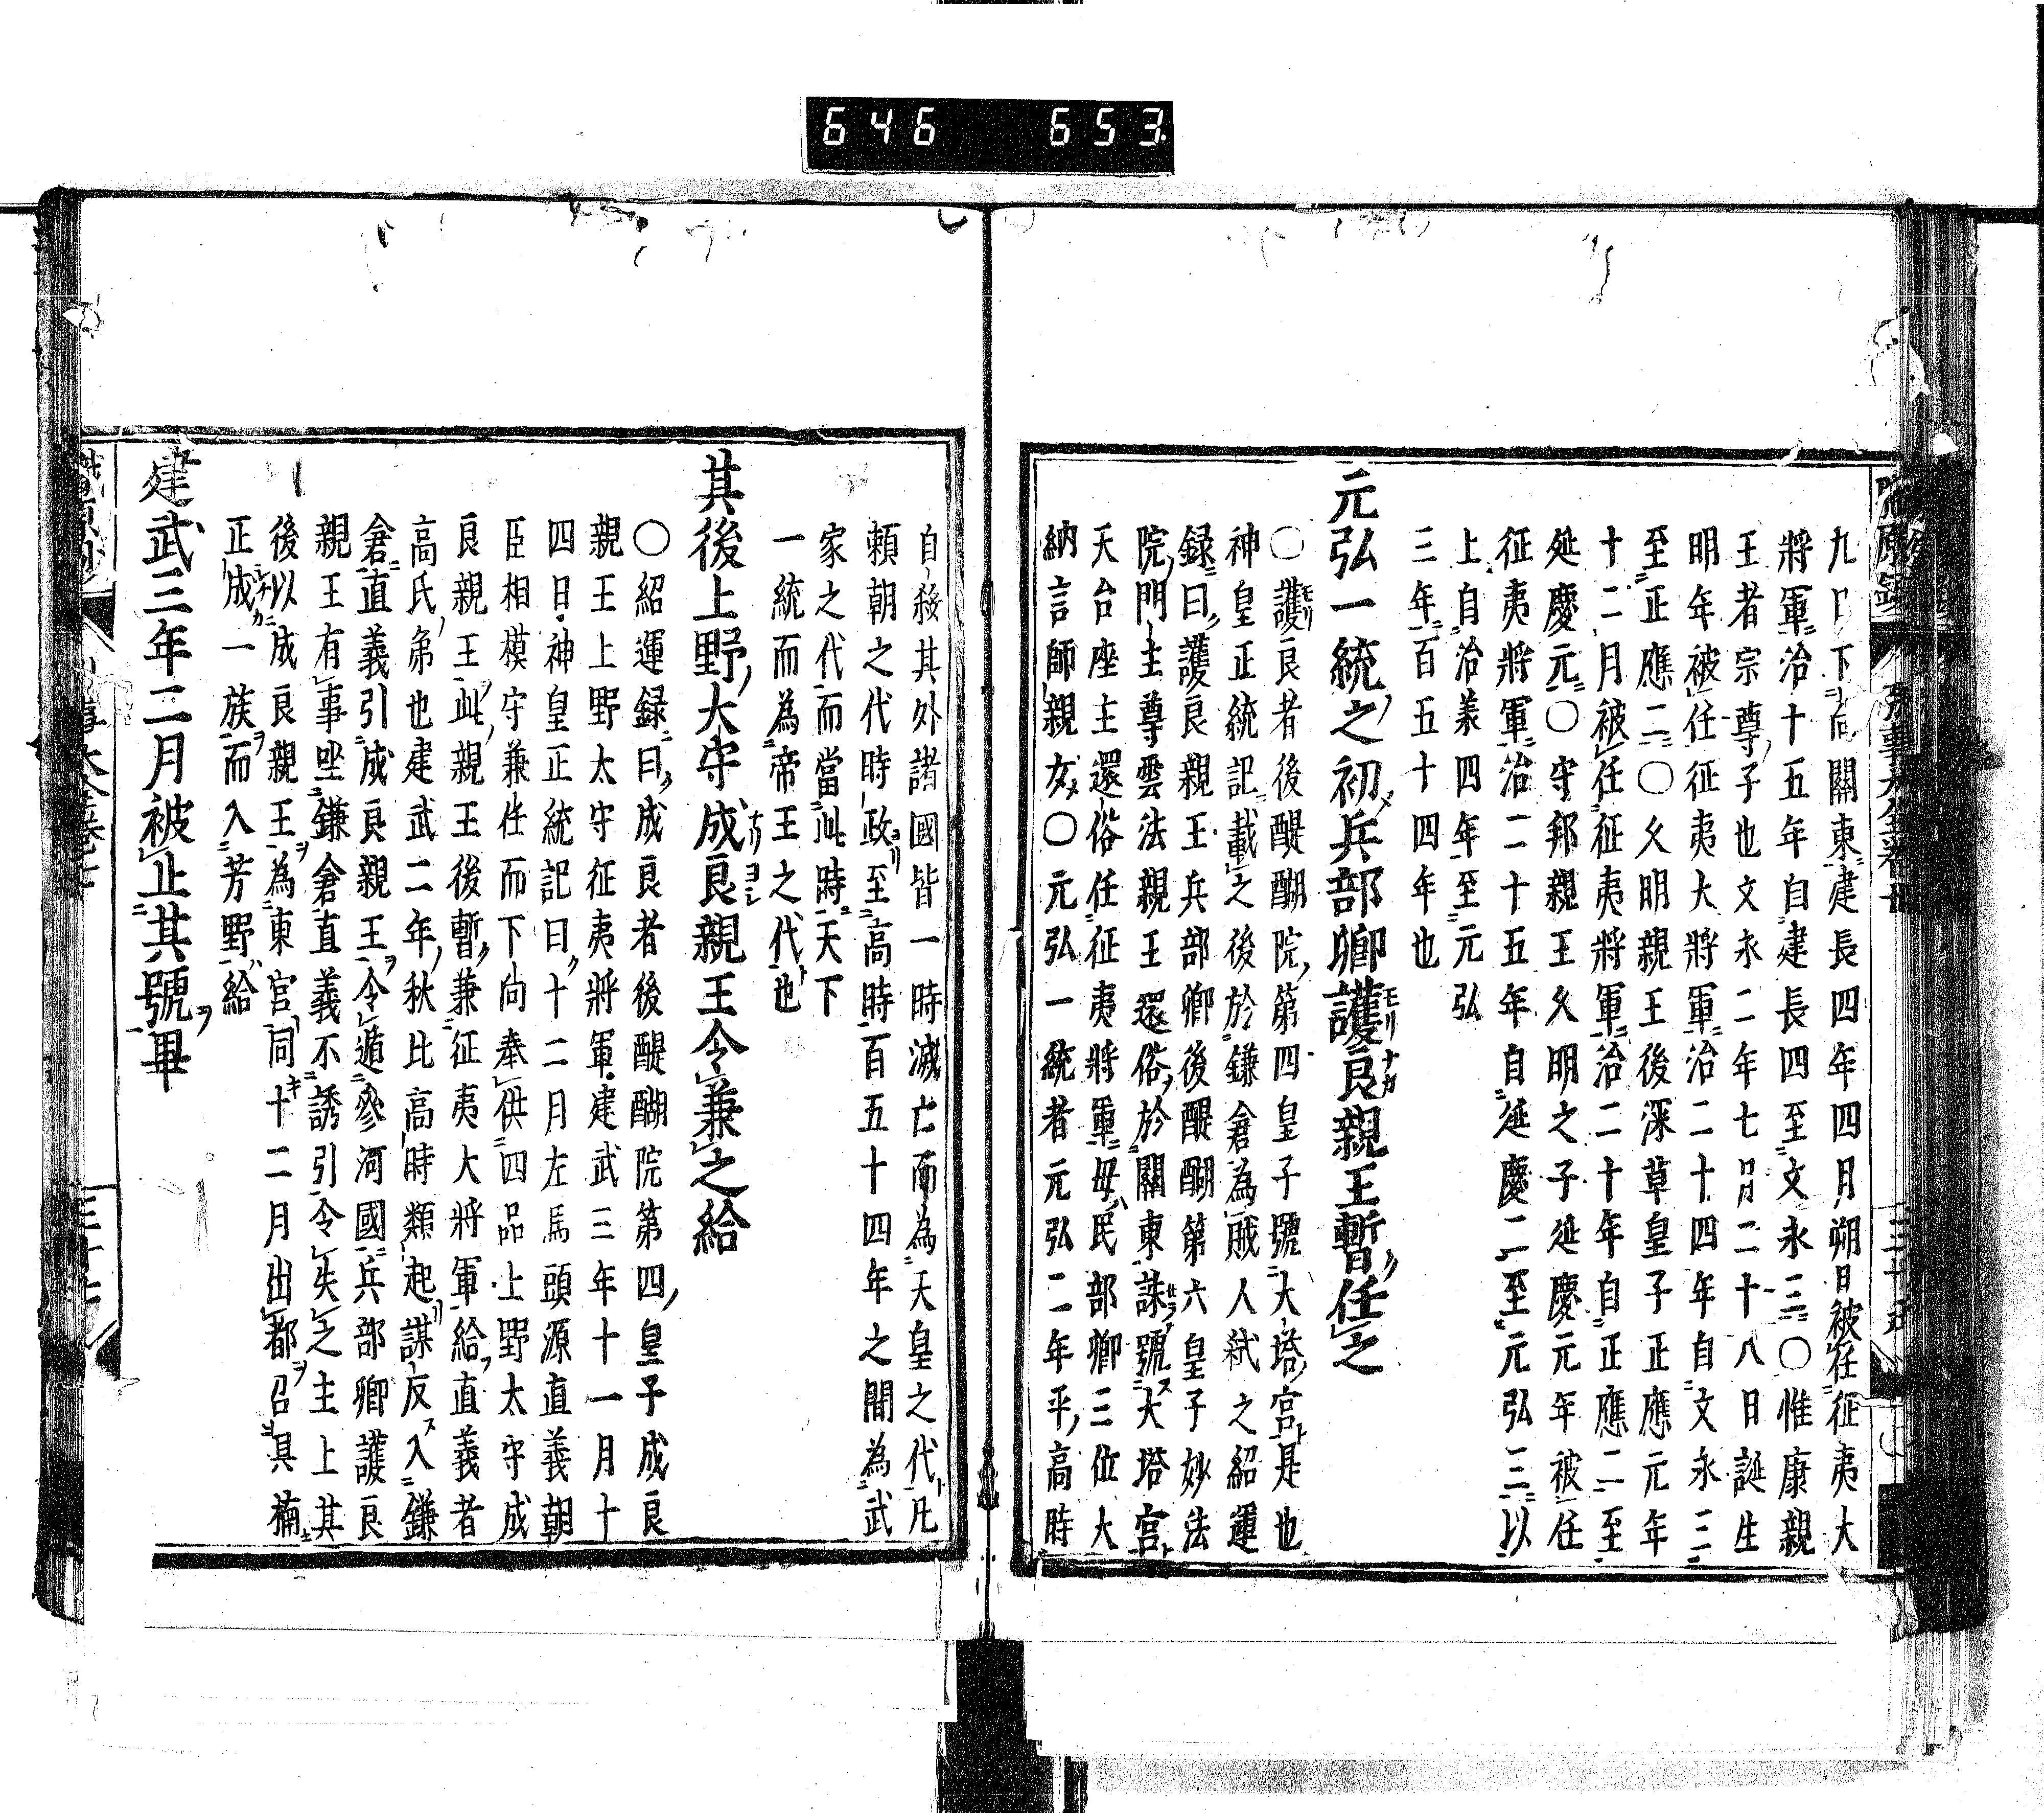 646 653
九日下向關東建長四年四月朔日被任征夷大
將軍治十五年自建長四至文永三〇惟康親
王者宗尊子也文永二年七月二十八日誕生
明年被任征夷大將軍治二十四年自文永三
至正應二〇久明親王後深草皇子正應元年
十二月被任征夷將軍治二十年自正應二至
延慶元〇守邦親王久明之子延慶元年被任
征夷將軍治二十五年自延慶二至元弘三以
上自治羕四年至元弘
三年百五十四年也
元弘一統之初兵部卿護良親王暫任之
〇護良者後醍醐院第四皇子號大塔宮是也
神皇正統記載之後於鎌倉為賊人弒之紹運
録曰護良親王兵部卿後醍醐第六皇子妙法
院門主尊雲法親王還俗於關東誅號大塔宮
天台座主還俗任征夷將軍母民部卿三位大
納言師親女〇元弘一統者元弘二年平高時
自殺其外諸國皆一時滅亡而為天皇之代凡
賴朝之代時政至高時百五十四年之間為武
家之代而當此時天下
一統而為帝王之代也
其後上野大守成良親王令兼之給
〇紹運録曰成良者後醍醐院第四皇子成良
親王上野太守征夷將軍建武三年十一月十
四日神皇正統記曰十二月左馬頭源直義朝
臣相模守兼任而下向奉供四品上野太守成
良親王此親王後暫兼征夷大將軍給直義者
高氏弟也建武二年秋比高時類起謀反入鎌
倉直義引成良親王令遁參河國兵部卿護良
親王有事坐鎌倉直義不誘引令失之主上其
後以成良親王為東宮同十二月出都召具楠
正成一族而入芳野給
建武三年二月被止其號畢